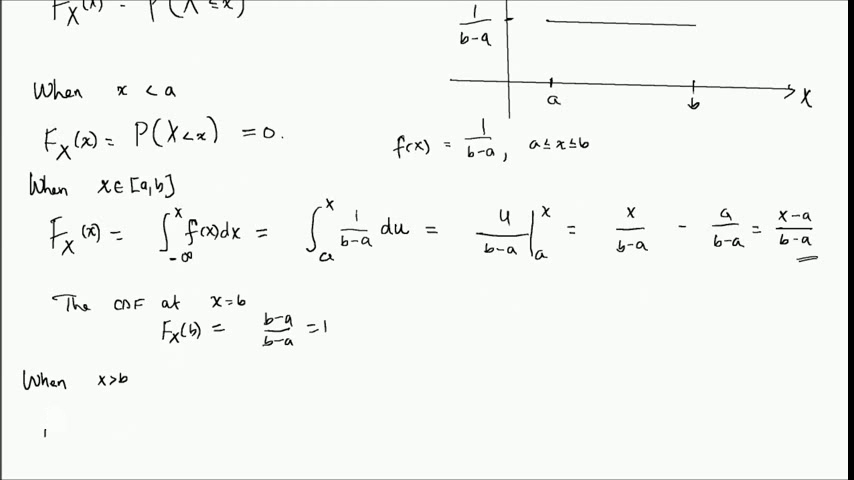 F_X(x) = P(X ≤ x)
1/(b-a)
a b X
When x < a
F_X(x) = P(X < x) = 0.
f(x) = 1/(b-a), a ≤ x ≤ b
When x ∈ [a,b]
F_X(x) = ∫_{-∞}^{x} f(x)dx = ∫_{a}^{x} 1/(b-a) du = u/(b-a) |_{a}^{x} = x/(b-a) - a/(b-a) = (x-a)/(b-a)
The CDF at x=b
F_X(b) = (b-a)/(b-a) = 1
When x>b